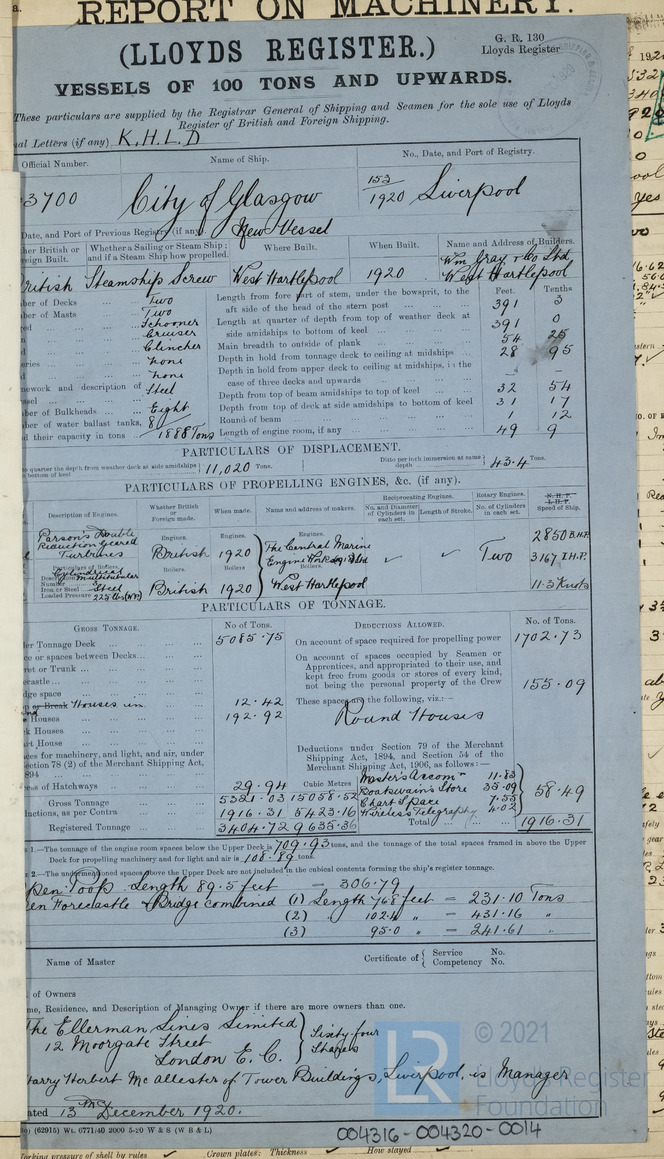 REPORT ON MACHINERY.
(LLOYDS REGISTER.)
G. R. 130
Lloyds Register
VESSELS OF 100 TONS AND UPWARDS.
These particulars are supplied by the Registrar General of Shipping and Seamen for the sole use of Lloyds
Register of British and Foreign Shipping.
al Letters (if any) K.H.L.D
Official Number.
Name of Ship.
No., Date, and Port of Registry.
3700
City of Glasgow
153
1920 Liverpool
Date, and Port of Previous Registry (if any).
New Vessel
ther British or
reign Built.
Whether a Sailing or Steam Ship;
and if a Steam Ship how propelled.
Where Built.
When Built.
Name and Address of Builders.
British
Steamship Screw
West Hartlepool
1920
Wm Gray & Co Ltd
West Hartlepool
ber of Decks Two
ber of Masts Two
Schooner
Cruiser
Clincher
None
None
nework and description of
Steel
ber of Bulkheads Eight
ber of water ballast tanks, 8
d their capacity in tons 1888 Tons
Feet. Tenths
Length from fore part of stem, under the bowsprit, to the
aft side of the head of the stern post 391 3
Length at quarter of depth from top of weather deck at
side amidships to bottom of keel 391 0
Main breadth to outside of plank 54 25
Depth in hold from tonnage deck to ceiling at midships 28 95
Depth in hold from upper deck to ceiling at midships, in the
case of three decks and upwards – –
Depth from top of beam amidships to top of keel 32 54
Depth from top of deck at side amidships to bottom of keel 31 17
Round of beam 1 12
Length of engine room, if any 49 9
PARTICULARS OF DISPLACEMENT.
quarter the depth from weather deck at side amidships
bottom of keel 11,020 Tons.
Ditto per inch immersion at same
depth 43.4 Tons.
PARTICULARS OF PROPELLING ENGINES, &c. (if any).
Description of Engines.
Whether British
or
Foreign made.
When made.
Name and address of makers.
Reciprocating Engines.
No. and Diameter
of Cylinders in
each set.
Length of Stroke.
Rotary Engines.
No. of Cylinders
in each set.
N.H.P.
I.H.P.
Speed of Ship.
Parsons Double
Reduction Geared
Turbines
Engines.
British
Engines.
1920
Engines.
The Central Marine
Engine Works
Two
2850 B.H.P.
3167 I.H.P.
Particulars of Boilers.
Cylindrical
Description Multitubular
Number 3
Iron or Steel Steel
Loaded Pressure 225 lbs
Boilers.
British
Boilers
1920
Boilers.
West Hartlepool
11.3 Knots
PARTICULARS OF TONNAGE.
GROSS TONNAGE.
No of Tons.
DEDUCTIONS ALLOWED.
No. of Tons.
er Tonnage Deck 5085.75
On account of space required for propelling power 1702.73
ce or spaces between Decks
ret or Trunk
castle
dge space
On account of spaces occupied by Seamen or
Apprentices, and appropriated to their use, and
kept free from goods or stores of every kind,
not being the personal property of the Crew 155.09
or Break Houses in 12.42
These spaces are the following, viz.:—
Houses 192.92
Round Houses
k Houses
rt House
ces for machinery, and light, and air, under
ection 78 (2) of the Merchant Shipping Act,
894
Deductions under Section 79 of the Merchant
Shipping Act, 1894, and Section 54 of the
Merchant Shipping Act, 1906, as follows:—
ess of Hatchways 29.94
Cubic Metres
Master's Accomn 11.83
Boatswain's Store 35.09
Chart Space 7.55
Wireless Telegraphy 4.02
58.49
Gross Tonnage 5321.03 15058.52
uctions, as per Contra 1916.31 5423.16
Registered Tonnage 3404.72 9635.36
Total 1916.31
1.—The tonnage of the engine room spaces below the Upper Deck is 709.93 tons, and the tonnage of the total spaces framed in above the Upper
Deck for propelling machinery and for light and air is 108.89 tons.
2.—The undermentioned spaces above the Upper Deck are not included in the cubical contents forming the ship's register tonnage.
pen Poop Length 89.5 feet = 306.79
en Forecastle & Bridge combined (1) Length 76.8 feet = 231.10 Tons
(2) 102.4 " = 431.16 "
(3) 95.0 " = 241.61 "
Name of Master
Certificate of { Service No.
Competency No.
of Owners
me, Residence, and Description of Managing Owner if there are more owners than one.
The Ellerman Lines Limited
12 Moorgate Street
London E.C.
Sixty-four
Shares
Harry Herbert McAllester of Tower Buildings, Liverpool, is Manager
ated 13th December 1920.
(62915) Wt. 6771/40 2000 5-20 W & S (W B & L)
004316-004320-0014
© 2021
Lloyd's Register
Foundation
LR
orking pressure of shell by rules
Crown plates: Thickness
How stayed